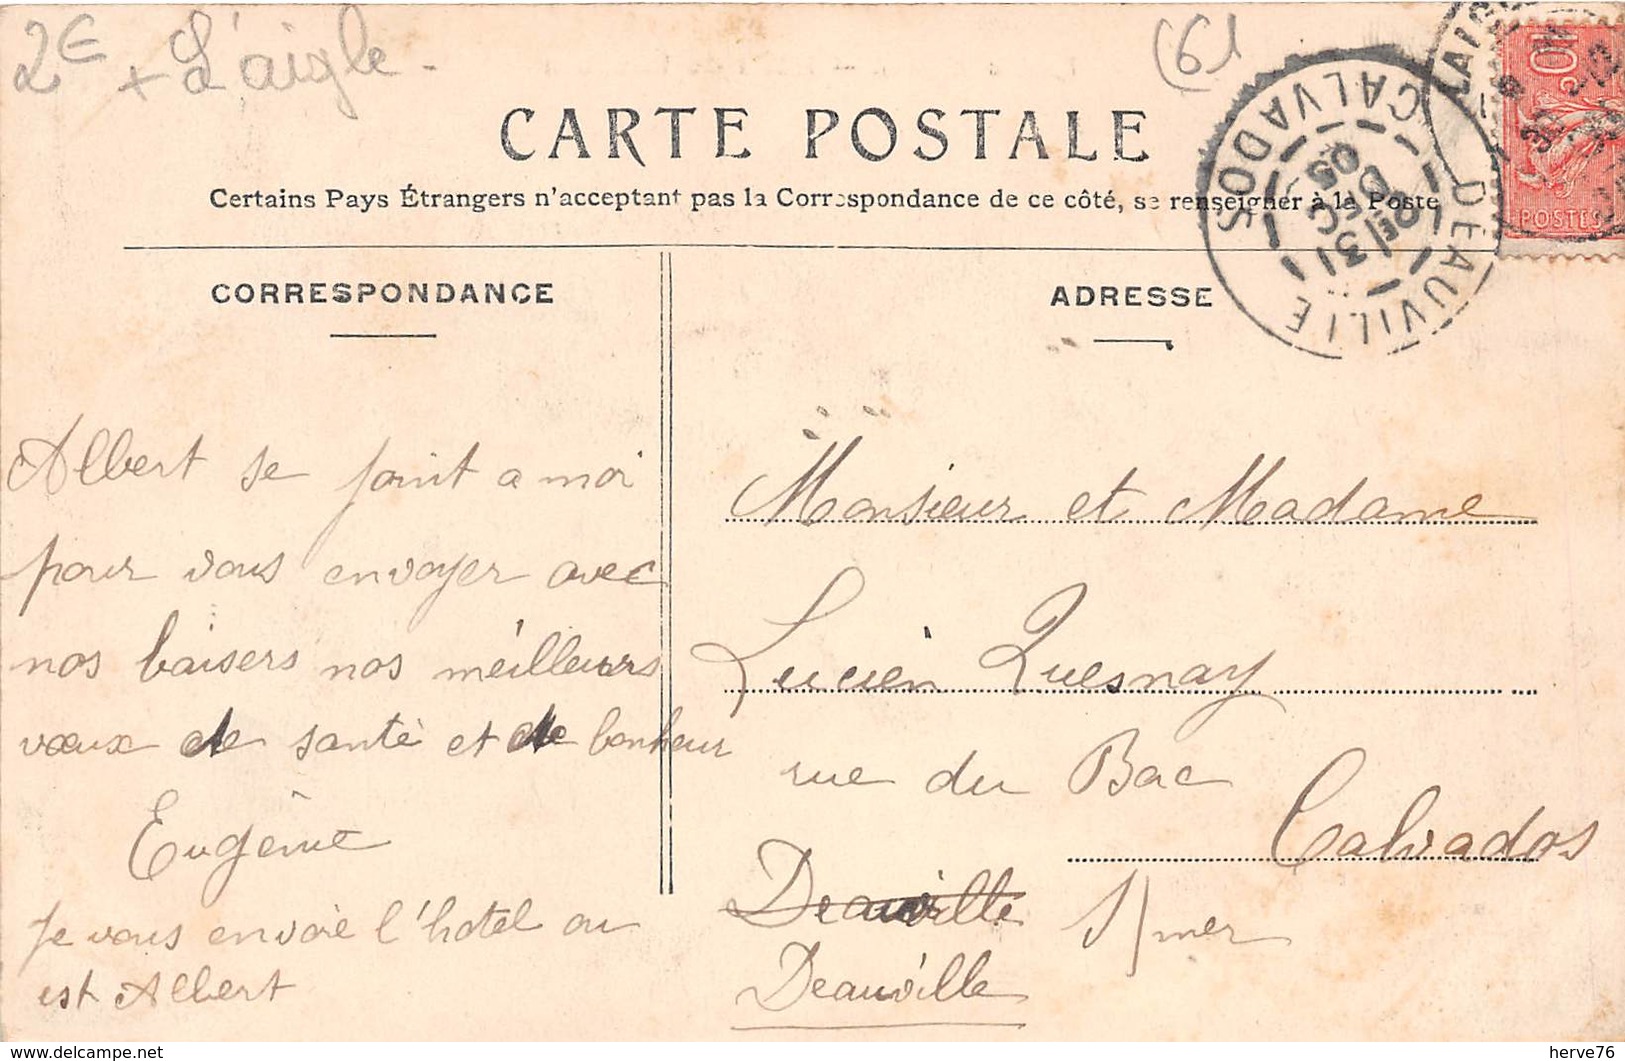 2€ + L'aigle. (61
CARTE POSTALE
Certains Pays Étrangers n'acceptant pas la Correspondance de ce côté, se renseigner à la Poste
CORRESPONDANCE
Albert se joint a moi
pour vous envoyer avec
nos baisers nos meilleurs
vœux de santé et de bonheur
Eugénie
Je vous envoie l'hotel ou
est Albert
ADRESSE
Monsieur et Madame
Lucien Quesnay
rue du Bac
Calvados
Deauville s/mer
Deauville
DEAUVILLE
CALVADOS
31
DEC
05
10c
POSTES
LAIGLE
delcampe.net
herve76